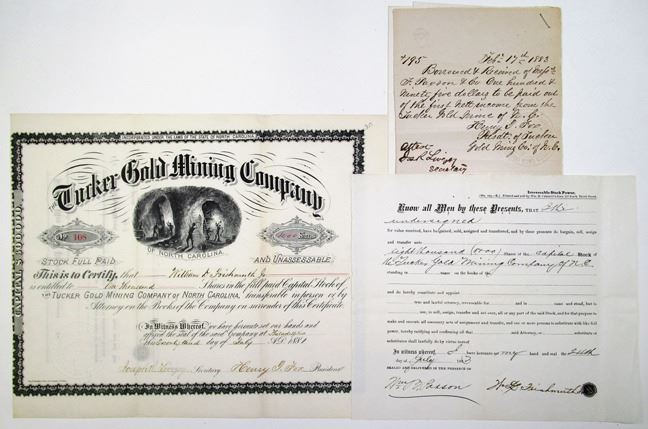 INCORPORATED UNDER THE LAWS OF THE STATE OF NORTH CAROLINA
THE Tucker Gold Mining Company
OF NORTH CAROLINA
No 108
STOCK FULL PAID
AND UNASSESSABLE.
This is to Certify that William D. Frishmuth Jr
is entitled to Shares in the full paid Capital Stock of
THE TUCKER GOLD MINING COMPANY OF NORTH CAROLINA, transferable in person or by
Attorney on the Books of the Company on surrender of this Certificate.
In Witness Whereof, we have hereunto set our hands and
affixed the seal of the said Company at Philadelphia
this day of July A.D. 1881
Secretary Henry I. Fox President
$195 Feby 17th 1883
Borrowed & Received of Messrs
& Co One hundred &
Ninety five dollars to be paid out
of the first nett income from the
Tucker Gold Mine of N. C.
Henry I. Fox
Presdt. of Tucker
Gold Ming Co. of N. C.
Secretary
Irrevocable Stock Power.
Know all Men by these Presents, THAT I the
undersigned
for value received, have bargained, sold, assigned and transferred, and by these presents do bargain, sell, assign
and transfer unto
Eight thousand (8000) Shares of the capital Stock of
the Tucker Gold Mining Company of N. C.
standing in name on the books of the
and do hereby constitute and appoint
true and lawful attorney, irrevocable for and in name and stead, but to
use, to sell, assign, transfer and set over, all or any part of the said Stock, and for that purpose to
make and execute all necessary acts of assignment and transfer, and one or more persons to substitute with like full
power, hereby ratifying and confirming all that said Attorney or substitute or
substitutes shall lawfully do by virtue hereof.
In witness whereof, I have hereunto set my hand and seal the 24th
day of July 188
SEALED AND DELIVERED IN THE PRESENCE OF
Wm D Frishmuth Jr